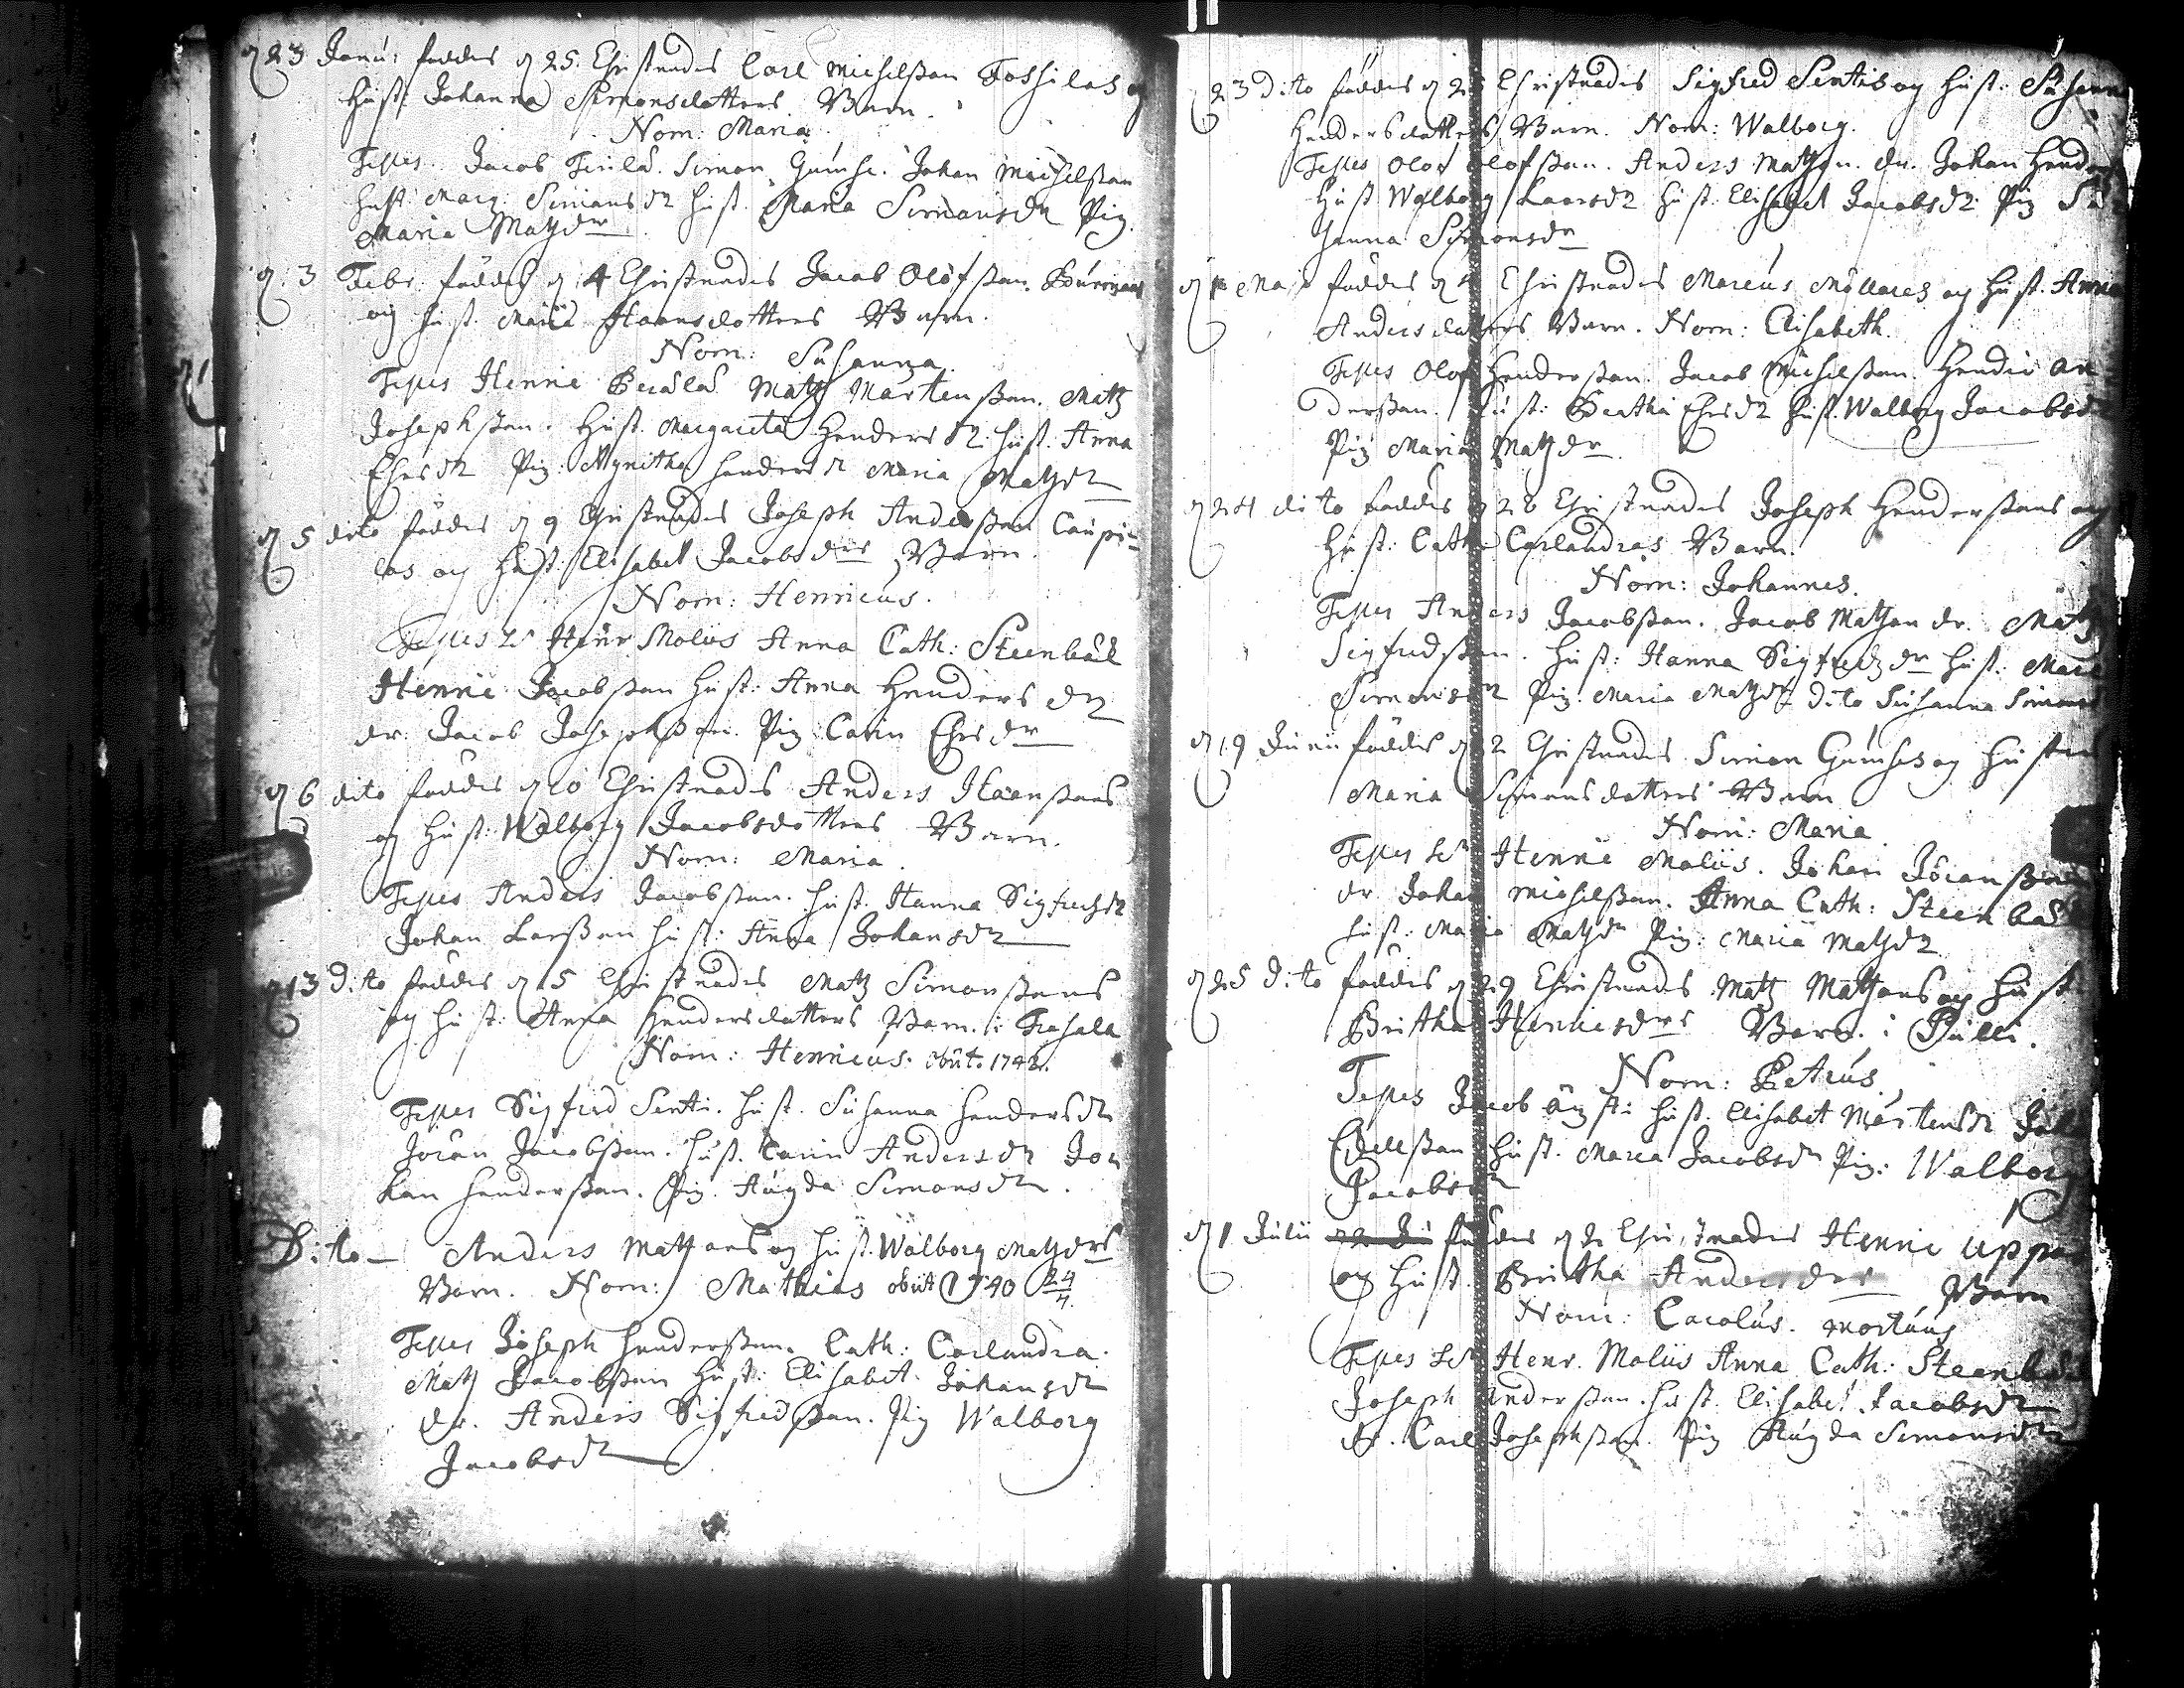 d 23 Janu: föddes d 25. Christnades Carl Michelßon Fossilas og
Hust. Johanna Simonsdotters Barn.
Nom: Maria
Testes. Jacob Simon Gumse. Johan Michelßon
hust: Marg: Simons dr hust. Maria Simons dr Pig.
Maria Matzdr
d. 3 Febr. föddes d. 4 Christnades Jacob Olofßon
og hust. Maria Hansdotters Barn.
Nom: Susanna
Testes Henric Matz Mårtenßon. Matz
Josephßon. Hust. Margareta Henders dr. hust. Anna
Ehrs dr Pig: Henders dr Maria Matzdr
d 5 dito föddes d 9 Christnades Joseph Anderßon Caupi=
las og Hust. Elisabet Jacobsdrs Barn.
Nom: Henricus.
Testes Hr Henr Molius Anna Cath: Steenbäck
Henric Jacobßon hust: Anna Henders dr
dr. Jacob Josephßon. Pig: Carin Ehrs dr
d 6 dito föddes d 10 Christnades Anders Hanßons
og hust: Walborg Jacobsdotters Barn.
Nom: Maria.
Testes Anders Jacobßon. hust. Hanna Sigfredz dr
Johan Larßon hust: Anna Johans dr
d 13 Dito föddes d 15 Christnades Matz Simonßons
og hust: Anna Hendersdotters Barn. i
Nom: Henricus. obiit. 1742.
Testes Sigfred Sentis. hust. Susanna Henders dr
Jöran Jacobßon. hust. Carin Anders dr Jo
han Henderßon. Pig. Augda Simons dr.
Dito — Anders Matzons og hust. Walborg Matzdrs
Barn. Nom: Mathias obiit 1740 24/4.
Testes Joseph Henderßon. Cath: Corlandra.
Matz Jacobßon hust: Elisabet. Johans dr
dr. Anders Sigfredßon. Pig Walborg
Jacobs dr
d 23 Dito föddes d 25 Christnades Sigfred Sentis og hust: Susanna
Hendersdotters Barn. Nom: Walborg.
Testes Olof Olofßon. Anders Matzon. dr. Johan Hender
Hust Walborg Laars dr hust. Elisabet Jacobs dr. Pig Su
sanna Simons dr
d 1 Maji föddes d 4 Christnades Marcus Möllares og hust. Anna
Andersdotters Barn. Nom: Elisabeth.
Testes Olof Henderßon. Jacob Michelßon. Hendric An
derßon. Hust: Beatha Ehrs dr hust. Walborg Jacobs dr
Pig Maria Matzdr.
d 24 dito föddes d 28 Christnades Joseph Henderßons og
Hust: Cath: Corlandras Barn.
Nom: Johannes.
Testes Anders Jacobßon. Jacob Matzon dr. Matz
Sigfredßon. hust: Hanna Sigfredz dr hust: Maria
Simons dr Pig: Maria Matzdr Dito Susanna Simons
d 19 Junii föddes d 22 Christnades Simon Gumses og hustru
Maria Simonsdotters Barn
Nom: Maria
Testes Hr Henric Molius. Johan Jöranßon
dr Johan Michelßon. Anna Cath: Steenbäck
hust: Maria Matzdr Pig: Maria Matzdr
d 25 Dito föddes d 29 Christnades Matz Matzons og hust
Britha Henricsdrs Barn. i Pulli.
Nom: Petrus
Testes Jacob hust. Elisabet Mårtens dr
hust. Maria Jacobs dr Pig: Walborg
Jacobs dr
d 1 Julii föddes d 2 Christnades Henric Uppa
og hust. Britha Andersdrs Barn
Nom: Carolus. mortuus
Testes Hr Henr. Molius Anna Cath: Steenbäck
Joseph Anderßon. hust. Elisabet Jacobs dr
dr. Carl Josephßon. Pig Augda Simons dr